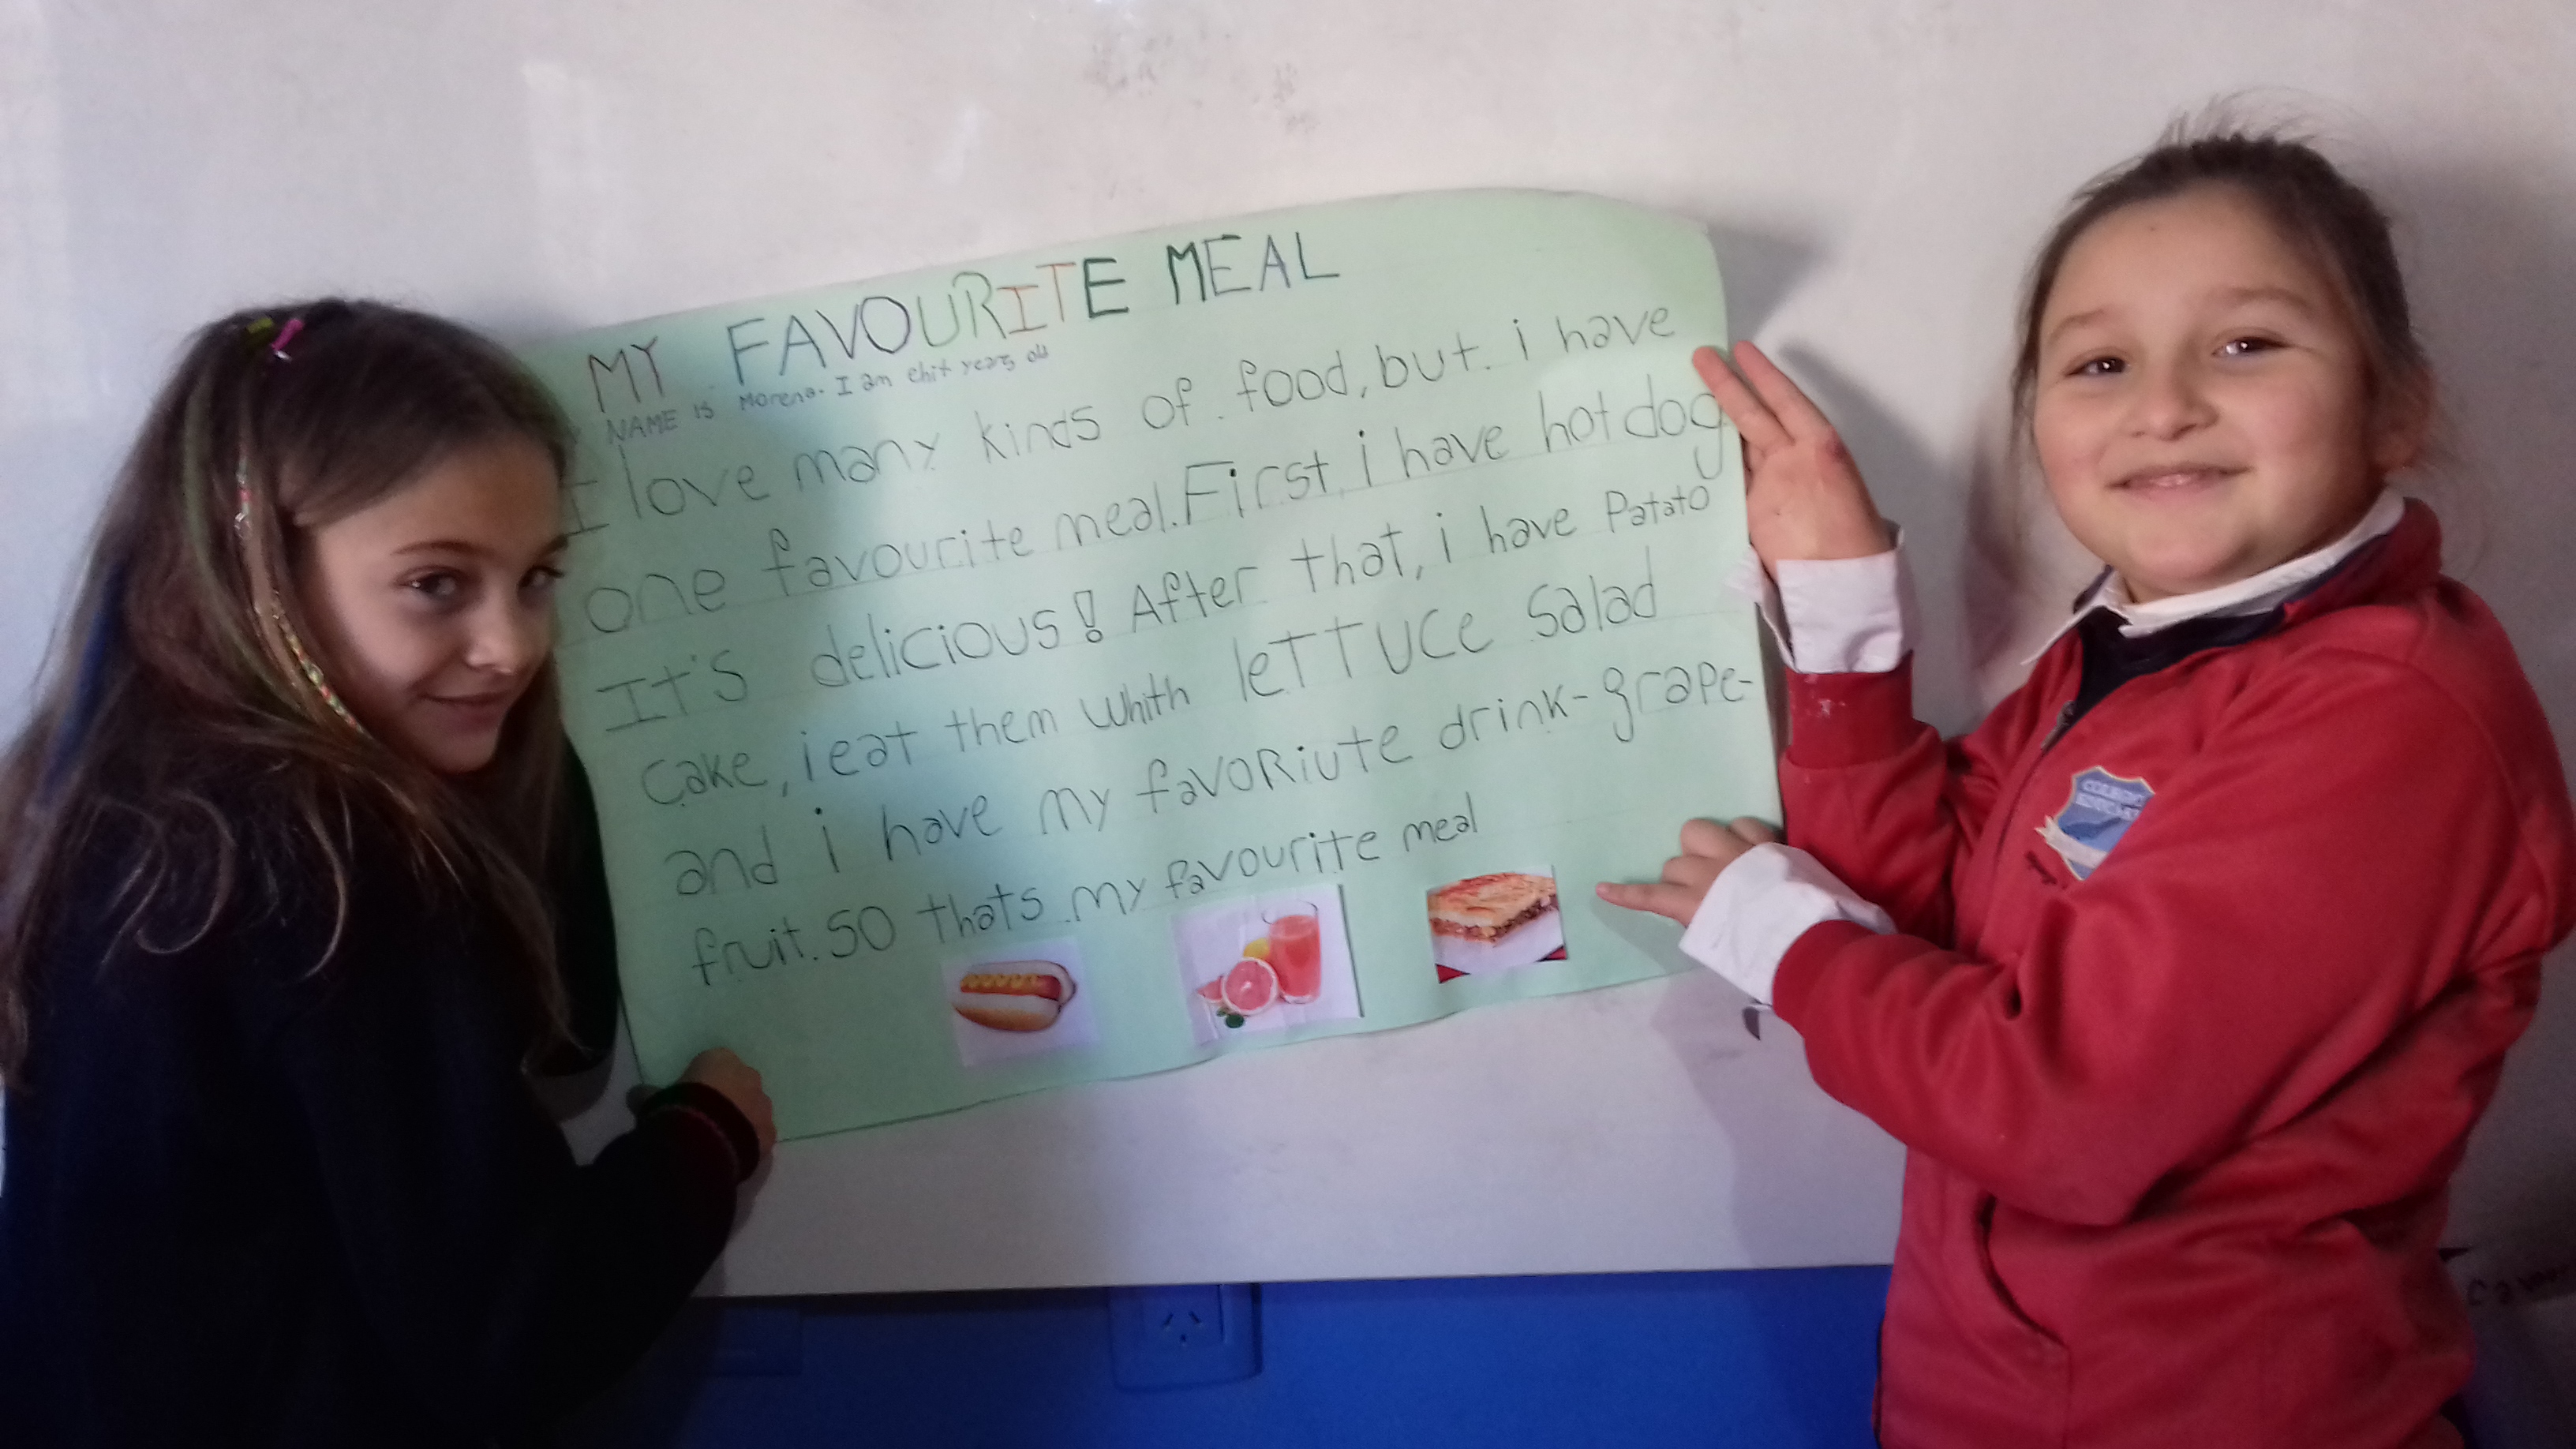 MY FAVOURITE MEAL
NAME IS Morena. I am ehit years old
I love many kinds of food, but. i have
one favourite meal. First, i have hot dog
It's delicious! After that, i have Patato
cake, i eat them whith leTTUCe salad
and i have my favoRiute drink-grape-
fruit. SO thats my favourite meal
COLEGIO